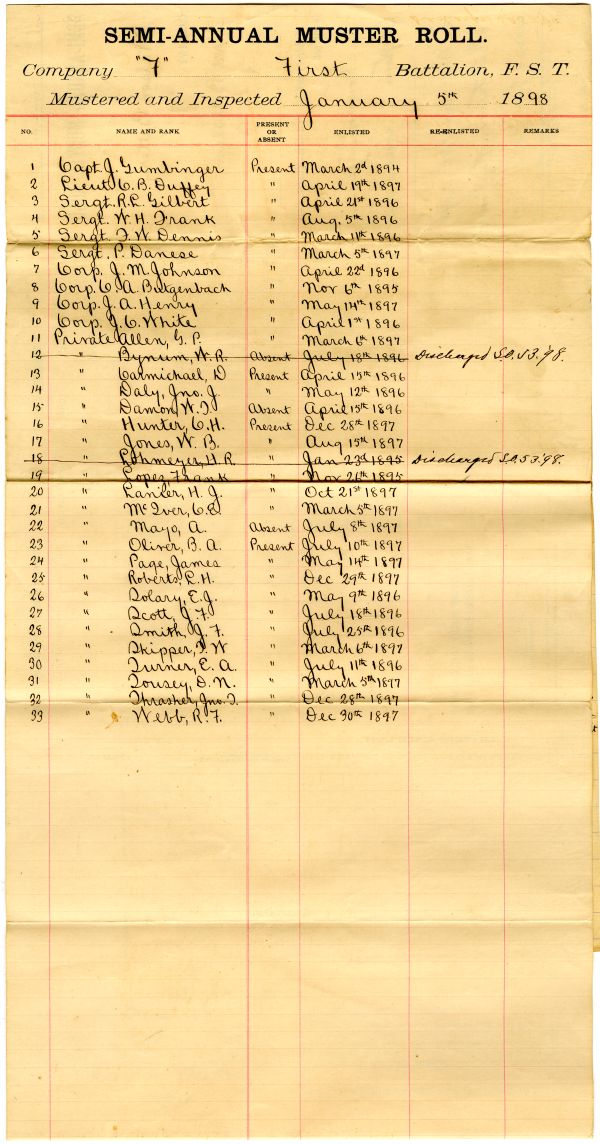 SEMI-ANNUAL MUSTER ROLL.
Company "F" First Battalion, F. S. T.
Mustered and Inspected January 5th 1898
NO. NAME AND RANK PRESENT OR ABSENT ENLISTED RE-ENLISTED REMARKS
1 Capt. J. Gumbinger Present March 2d 1894
2 Lieut. C. B. Duffey " April 19th 1897
3 Sergt. R. L. Gilbert " April 21st 1896
4 Sergt. W. H. Frank " Aug. 5th 1896
5 Sergt. F. W. Dennis " March 11th 1896
6 Sergt. P. Danese " March 5th 1897
7 Corp. J. M. Johnson " April 22d 1896
8 Corp. C. A. Butgenbach " Nov 6th 1895
9 Corp. J. A. Henry " May 14th 1897
10 Corp. J. C. White " April 1st 1896
11 Private Allen, G. P. " March 6th 1897
12 " Bynum, W. R. Absent July 18th 1896 Discharged S.O. 53.'98.
13 " Carmichael, D Present April 15th 1896
14 " Daly, Jno. J. " May 12th 1896
15 " Damon, W. J. Absent April 15th 1896
16 " Hunter, C. H. Present Dec 28th 1897
17 " Jones, W. B. " Aug 15th 1897
18 " Lohmeyer, H. R " Jan 23d 1895 Discharged S.O. 53.'98.
19 " Lopez Frank " Nov 26th 1895
20 " Lanier, H. J. " Oct 21st 1897
21 " McIver, C. E. " March 5th 1897
22 " Mayo, A. Absent July 8th 1897
23 " Oliver, B. A. Present July 10th 1897
24 " Page, James " May 14th 1897
25 " Roberts, L. H. " Dec 29th 1897
26 " Solary, E. J. " May 9th 1896
27 " Scott, J. F. " July 18th 1896
28 " Smith, J. F. " July 25th 1896
29 " Skipper, T. W " March 6th 1897
30 " Turner, E. A. " July 11th 1896
31 " Tousey, D. N. " March 5th 1897
32 " Thrasher, Jno. T. " Dec 28th 1897
33 " Webb, R. F. " Dec 30th 1897